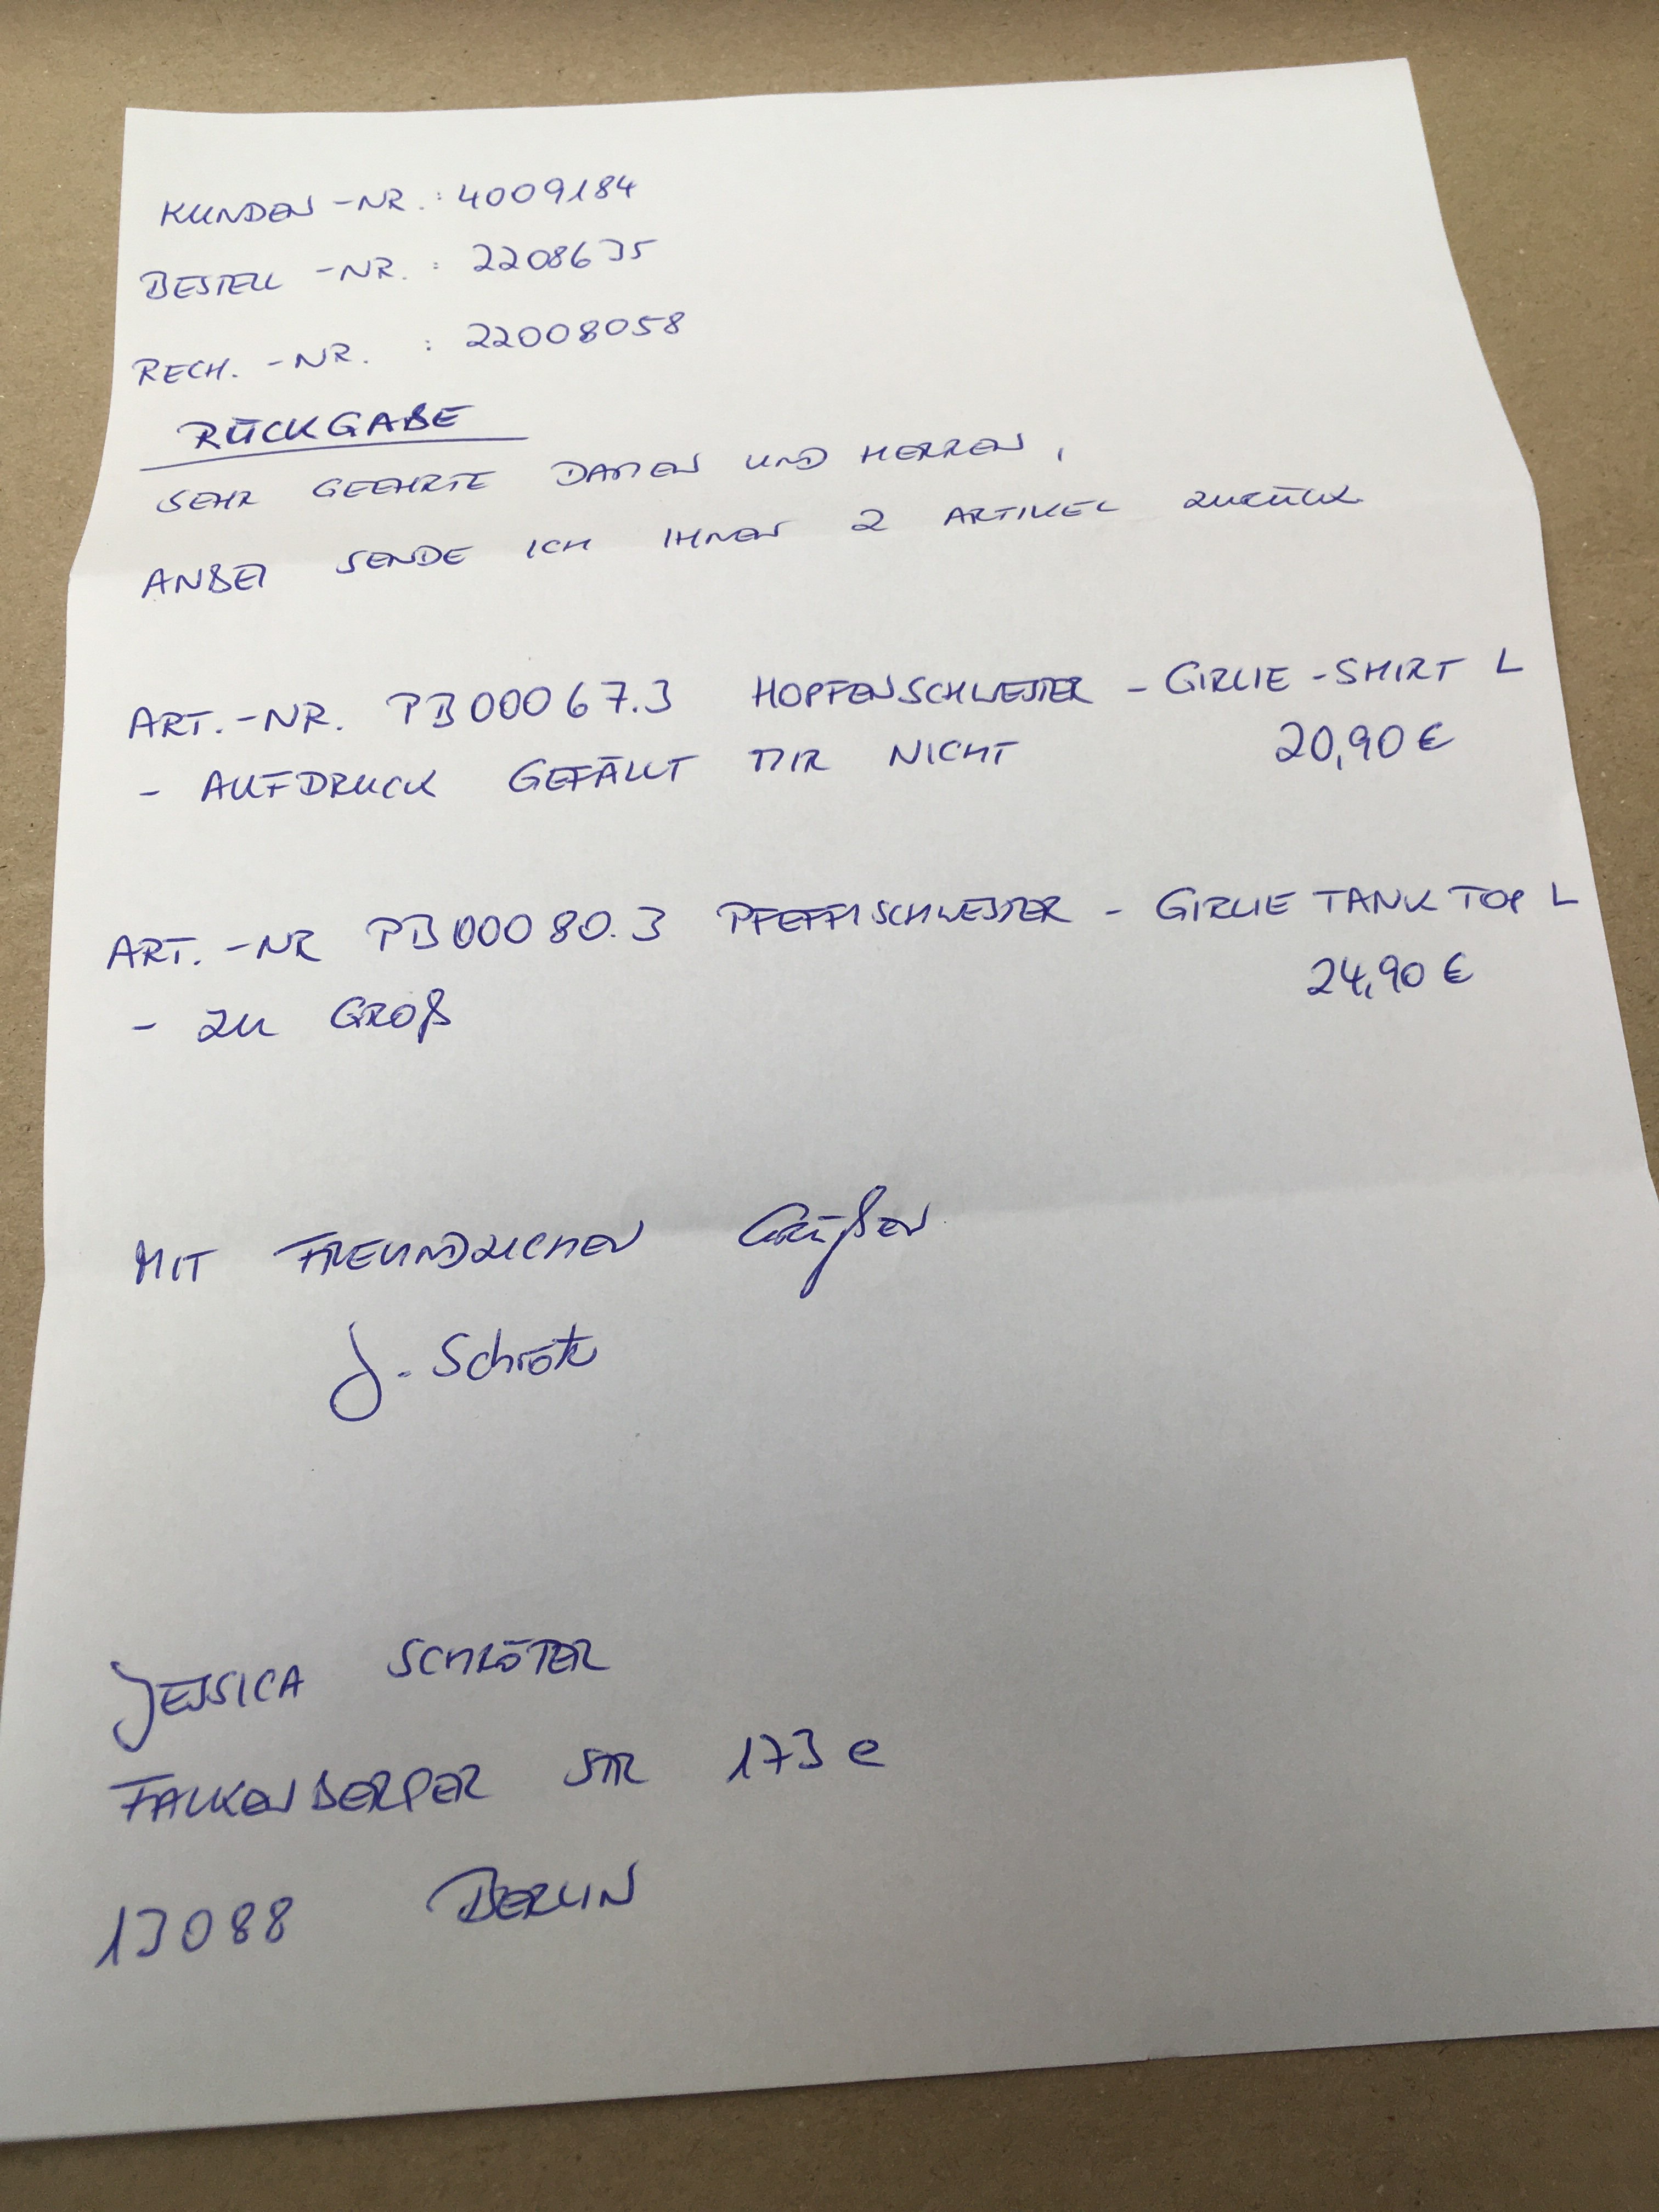 KUNDEN-NR.: 4009184
BESTELL-NR.: 2208635
RECH.-NR. : 22008058
RÜCKGABE
SEHR GEEHRTE DAMEN UND HERREN,
ANBEI SENDE ICH IHNEN 2 ARTIKEL ZURÜCK
ART.-NR. PB00067.3 HOPFENSCHWESTER - GIRLIE-SHIRT L
- AUFDRUCK GEFÄLLT MIR NICHT 20,90 €
ART.-NR PB00080.3 PFEFFISCHWESTER - GIRLIE TANK TOP L
24,90 €
- ZU GROß
MIT FREUNDLICHEN GRÜßEN
J. Schröter
JESSICA SCHRÖTER
FALKENBERGER STR 173 e
13088 BERLIN